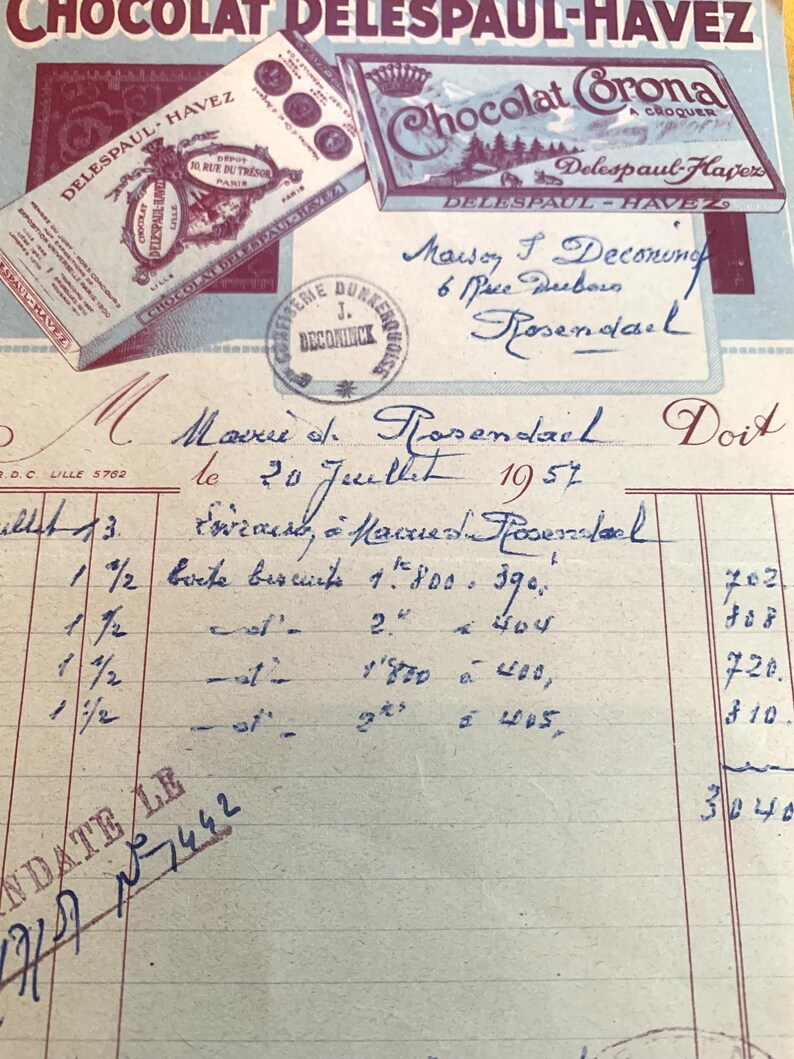 CHOCOLAT DELESPAUL-HAVEZ
DELESPAUL-HAVEZ
DÉPOT
10, RUE DU TRÉSOR
PARIS
CHOCOLAT
DELESPAUL-HAVEZ
LILLE
MEMBRE DU JURY - HORS CONCOURS
EXPOSITION UNIVERSELLE PARIS 1900
LILLE
PARIS
CHOCOLAT DELESPAUL-HAVEZ
DELESPAUL-HAVEZ
Chocolat Corona
A CROQUER
Delespaul-Havez
DELESPAUL-HAVEZ
Maison J Deconinck
6 Rue Dubois
Rosendael
CONFISERIE DUNKERQUOISE
J.
DECONINCK
M Mairie de Rosendael Doit
R.D.C LILLE 5762
le 20 Juillet 1957
Juillet 13 Livraison à Mairie de Rosendael
1 1/2 boite biscuits 1k800 à 390, 702.
1 1/2 -d°- 2k à 404 808
1 1/2 -d°- 1k800 à 400, 720.
1 1/2 -d°- 2ks à 405, 810.
3040
MANDATE LE
N° 1442